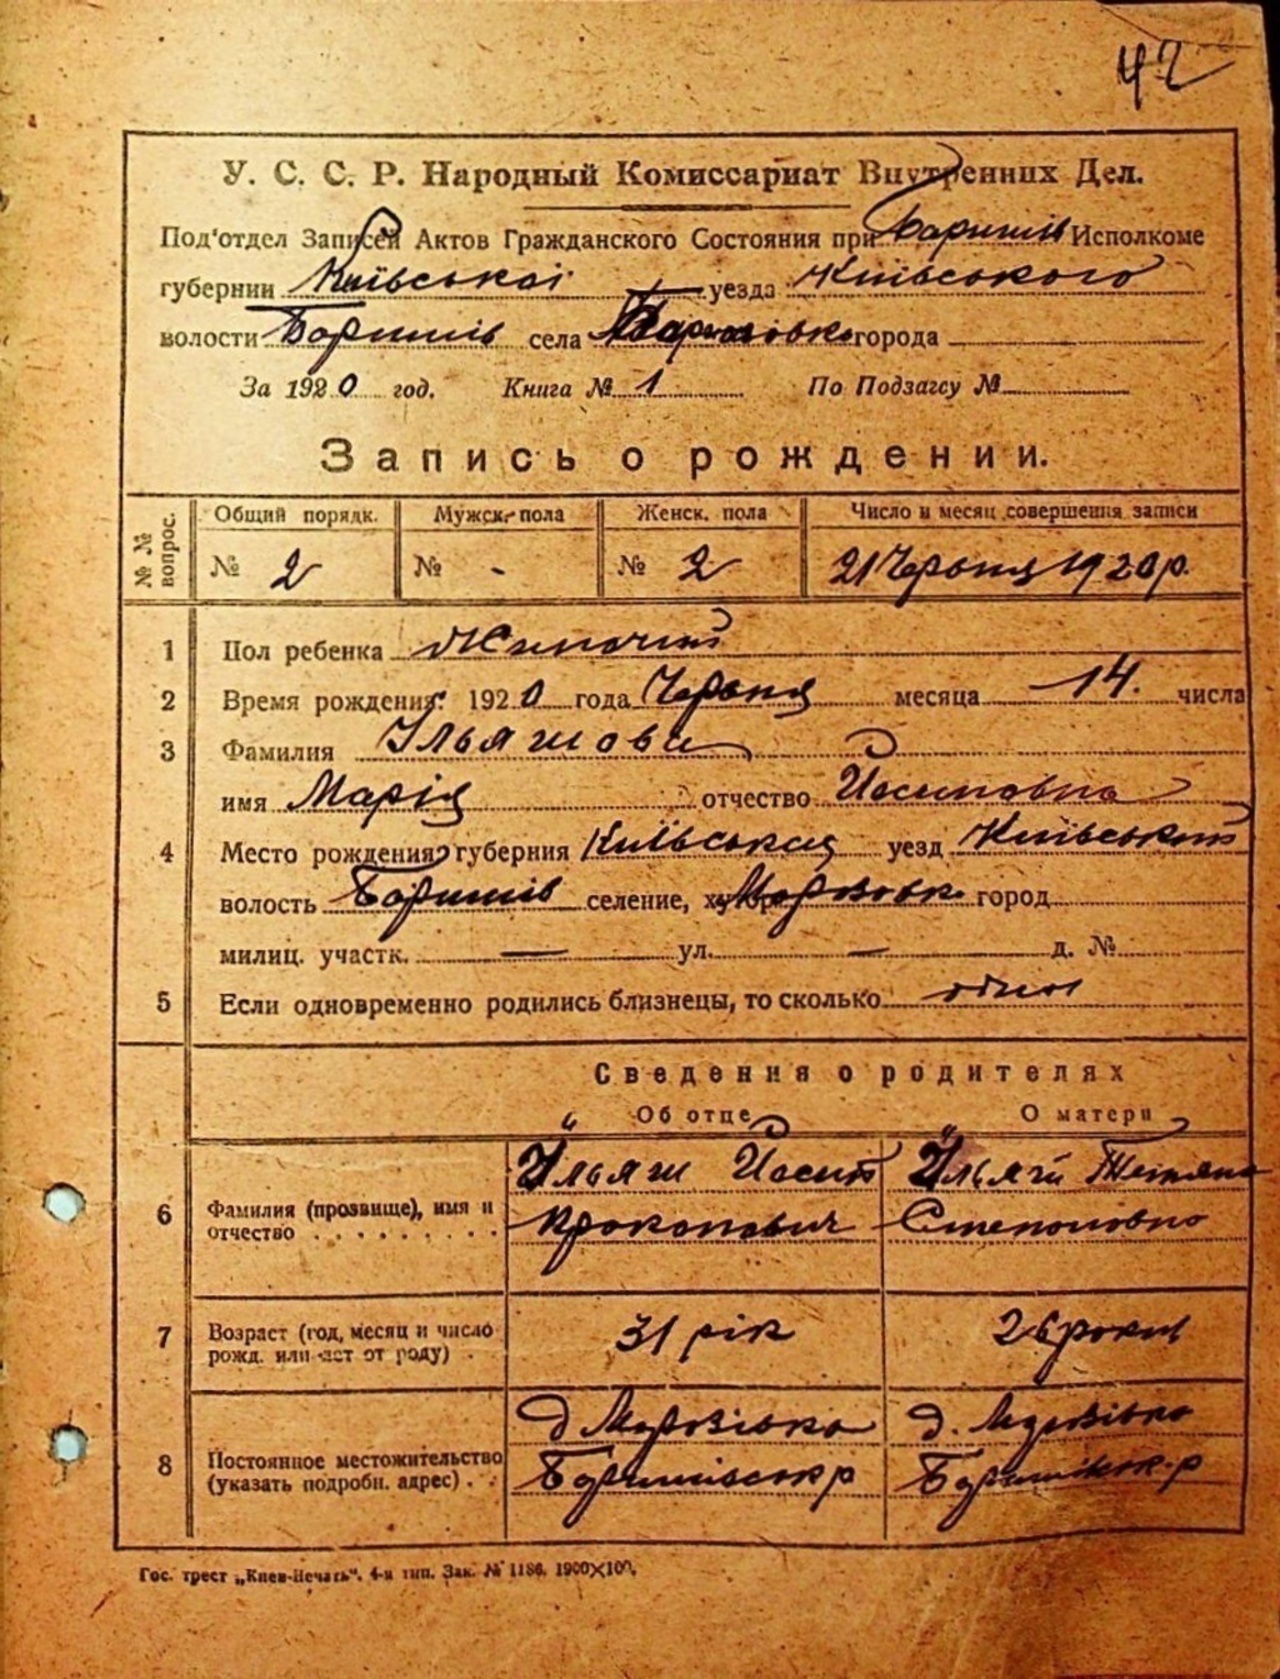 42
У. С. С. Р. Народный Комиссариат Внутренних Дел.
Под'отдел Записей Актов Гражданского Состояния при Баришів Исполкоме
губернии Київської уезда Київського
волости Баришів села города
За 1920 год. Книга № 1 По Подзагсу №
Запись о рождении.
№ № вопрос. Общий порядк. Мужск. пола Женск. пола Число и месяц совершения записи
№ 2 № - № 2 21 Червня 1920 р.
1 Пол ребенка Жиночий
2 Время рождения: 1920 года Червня месяца 14. числа
3 Фамилия Ильяшова
имя Марія отчество Йосиповна
4 Место рождения губерния Київська уезд Київський
волость Баришів селение, хутор Морозовк город
милиц. участк. — ул. — д. №
5 Если одновременно родились близнецы, то сколько
Сведения о родителях
Об отце О матери
6 Фамилия (прозвище), имя и Ильяш Йосип Ильяш Тетяна
отчество Прокопович Степановна
7 Возраст (год, месяц и число 31 рік 26 років
рожд. или лет от роду)
8 Постоянное местожительство д Морозівка д. Морозівка
(указать подробн. адрес) Баришівськ р Баришівськ. р
Гос. трест „Киев-Печать“. 4-я тип. Зак. № 1186. 1900×100.